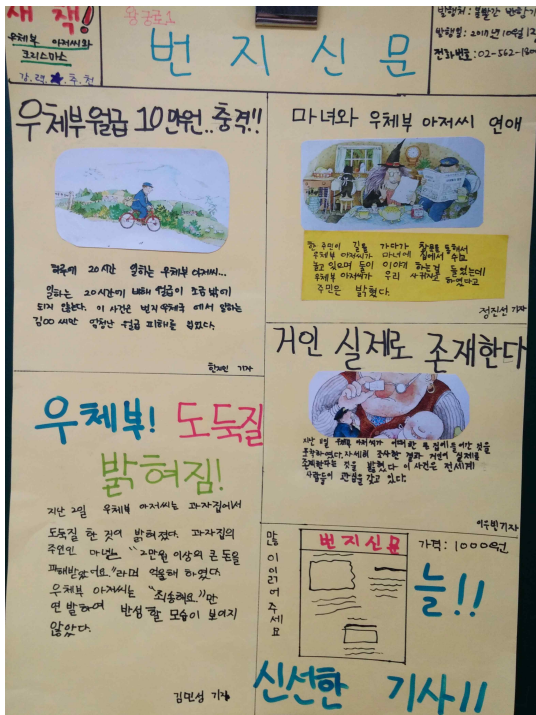 새 책!
우체부 아저씨와
크리스마스
강.력.★.추.천
번지신문
발행일: 2017년 10월 1
전화번호: 02-562-1
우체부 월급 10만원..충격!!
하루에 20시간 일하는 우체부 아저씨...
일하는 20시간에 비해 월급이 조금 밖에
되지 않는다. 이 사건은 번지 우체국 에서 일하는
김OO씨만 엄청난 월급 피해를 입었다.
기자
마녀와 우체부 아저씨 연애
한 주민이 길을 가다가 창문을 통해서
우체부 아저씨가 마녀네 집에서 쉬고
놀고 있으며 둘이 이야기 하는걸 들었는데
우체부 아저씨가 우리 사귀자고 하였다고
주민은 밝혔다.
정진선 기자
거인 실제로 존재한다
지난 8일 우체부 아저씨가 거대한 집에 들어간 것을
자세히 조사한 결과 거인이 실제로
존재한다는 것을 밝혔다 이 사건은 전세계
사람들이 관심을 갖고 있다.
이우빈 기자
우체부! 도둑질
밝혀짐!
지난 2일 우체부 아저씨는 과자집에서
도둑질 한 것이 밝혀졌다. 과자집의
주인인 마녀는 "2만원 이상의 큰 돈을
피해받았어요."라며 억울해 하였다.
우체부 아저씨는 "죄송해요."만
연발하여 반성 할 모습이 보이지
않았다.
김민성 기자
많이 읽어주세요
번지신문
가격: 1000원
늘!!
신선한 기사!!